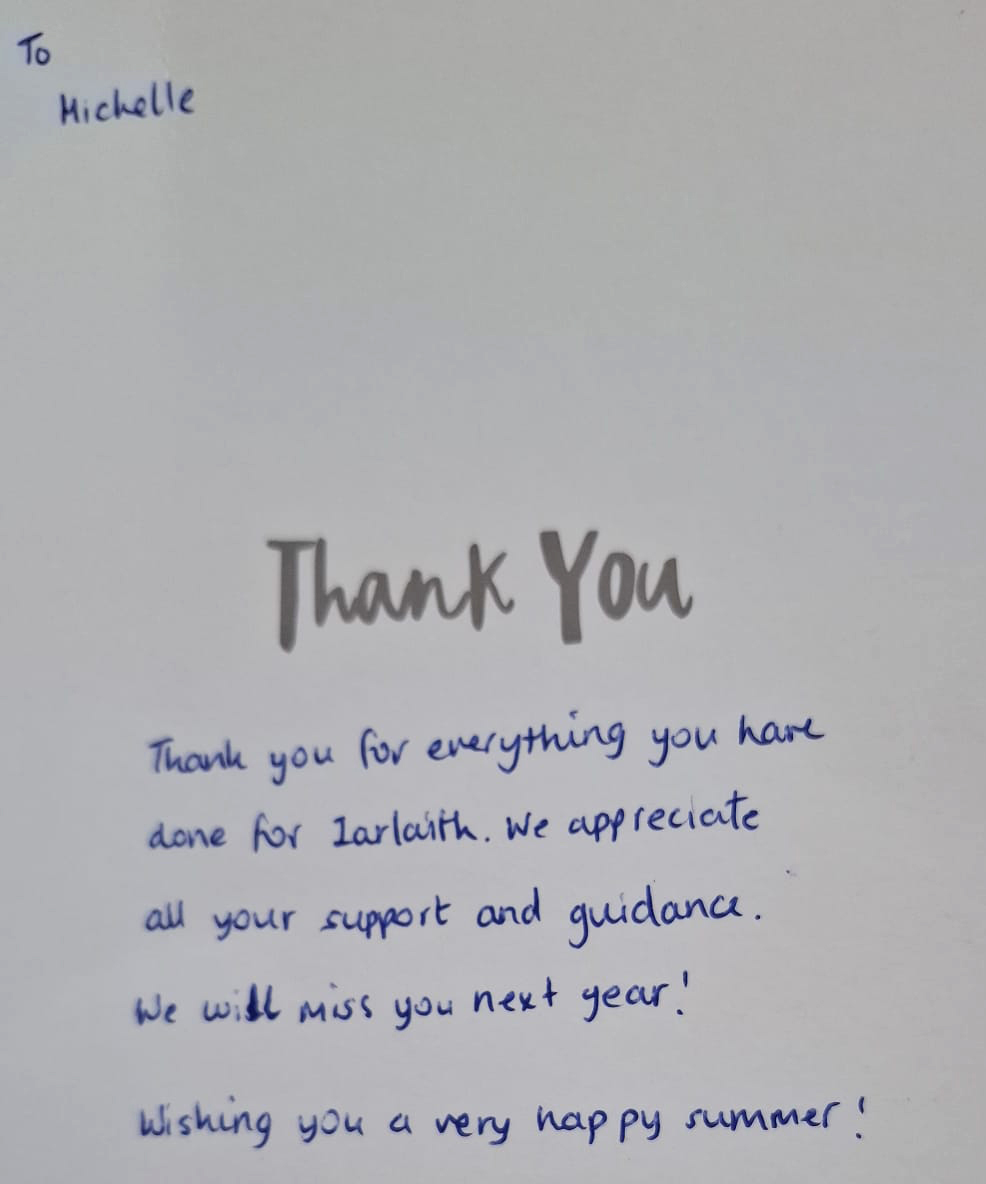 To
Michelle
Thank You
Thank you for everything you have
done for Iarlaith. We appreciate
all your support and guidance.
We will miss you next year!
Wishing you a very happy summer!